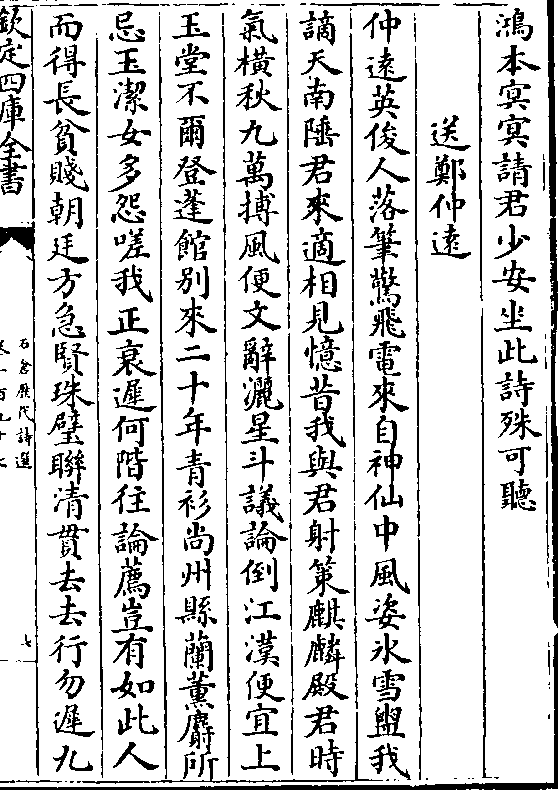 鴻本㝠㝠請君少安坐此詩殊可聽
送鄭仲遠
仲遠英俊人落筆驚飛電來自神仙中風姿氷雪盥我
謫天南陲君來適相見憶昔我與君射策麒麟殿君時
氣橫秋九萬摶風便文辭灑星斗議論倒江漢便宜上
玉堂不爾登蓬館别來二十年青衫尚州縣蘭薫麝所
忌玉潔女多怨嗟我正衰遲何階往論薦豈有如此人
而得長貧賤朝廷方急賢珠璧聨清貫去去行勿遲九
欽定四庫全書
石倉歴代詩選
七